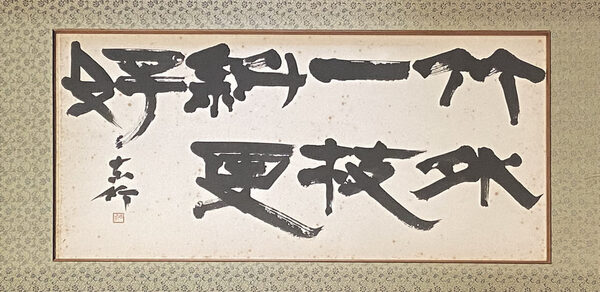 竹外
一枝
斜更
好